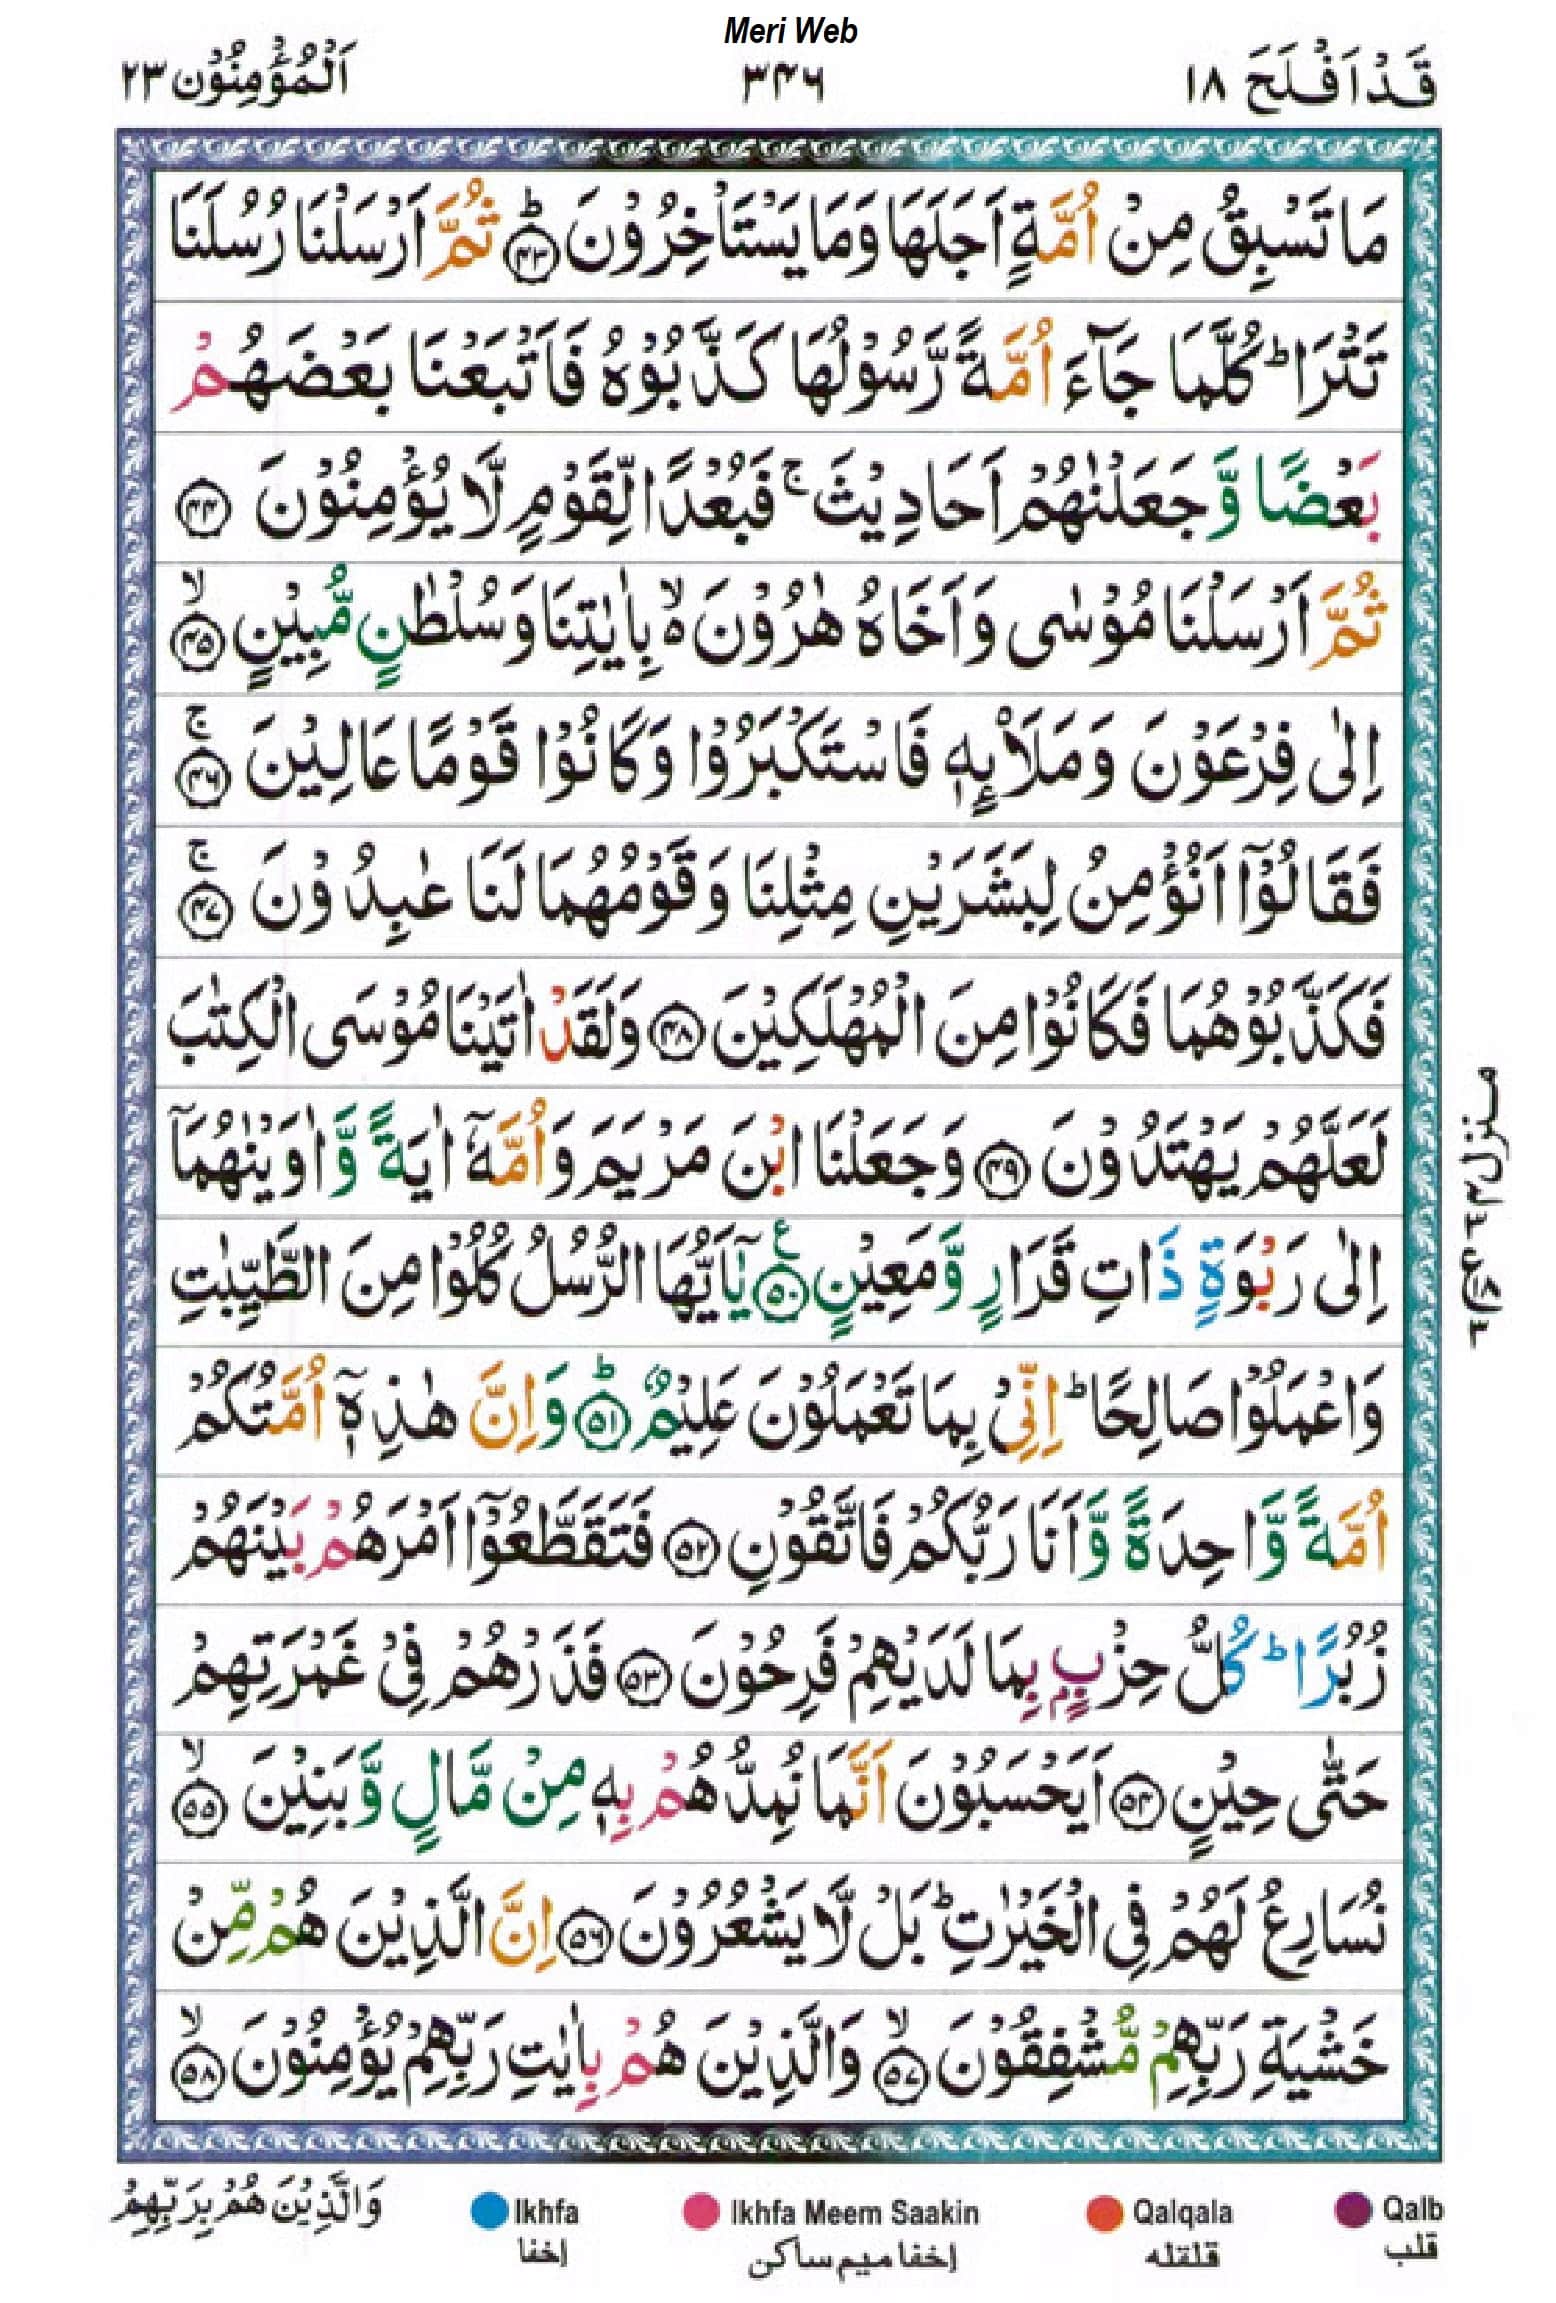 Meri Web
قَدْ اَفْلَحَ ۱۸
۳۴۶
اَلْمُؤْمِنُوْن ۲۳
مَا تَسْبِقُ مِنْ اُمَّةٍ اَجَلَهَا وَمَا يَسْتَاْخِرُوْنَ ؕ﴿۴۳﴾ ثُمَّ اَرْسَلْنَا رُسُلَنَا
تَتْرَا ؕ كُلَّمَا جَآءَ اُمَّةً رَّسُوْلُهَا كَذَّبُوْهُ فَاَتْبَعْنَا بَعْضَهُمْ
بَعْضًا وَّجَعَلْنٰهُمْ اَحَادِيْثَ ۚ فَبُعْدًا لِّقَوْمٍ لَّا يُؤْمِنُوْنَ ﴿۴۴﴾
ثُمَّ اَرْسَلْنَا مُوْسٰى وَاَخَاهُ هٰرُوْنَ ۙ۬ بِاٰيٰتِنَا وَسُلْطٰنٍ مُّبِيْنٍ ۙ﴿۴۵﴾
اِلٰى فِرْعَوْنَ وَمَلَا۟ئِهٖ فَاسْتَكْبَرُوْا وَكَانُوْا قَوْمًا عَالِيْنَ ۚ﴿۴۶﴾
فَقَالُوْۤا اَنُؤْمِنُ لِبَشَرَيْنِ مِثْلِنَا وَقَوْمُهُمَا لَنَا عٰبِدُوْنَ ۚ﴿۴۷﴾
فَكَذَّبُوْهُمَا فَكَانُوْا مِنَ الْمُهْلَكِيْنَ ﴿۴۸﴾ وَلَقَدْ اٰتَيْنَا مُوْسَى الْكِتٰبَ
لَعَلَّهُمْ يَهْتَدُوْنَ ﴿۴۹﴾ وَجَعَلْنَا ابْنَ مَرْيَمَ وَاُمَّهٗۤ اٰيَةً وَّاٰوَيْنٰهُمَاۤ
اِلٰى رَبْوَةٍ ذَاتِ قَرَارٍ وَّمَعِيْنٍ ﴿۵۰﴾ع يٰۤاَيُّهَا الرُّسُلُ كُلُوْا مِنَ الطَّيِّبٰتِ
وَاعْمَلُوْا صَالِحًا ؕ اِنِّىْ بِمَا تَعْمَلُوْنَ عَلِيْمٌ ؕ﴿۵۱﴾ وَاِنَّ هٰذِهٖۤ اُمَّتُكُمْ
اُمَّةً وَّاحِدَةً وَّاَنَا رَبُّكُمْ فَاتَّقُوْنِ ﴿۵۲﴾ فَتَقَطَّعُوْۤا اَمْرَهُمْ بَيْنَهُمْ
زُبُرًا ؕ كُلُّ حِزْبٍۭ بِمَا لَدَيْهِمْ فَرِحُوْنَ ﴿۵۳﴾ فَذَرْهُمْ فِىْ غَمْرَتِهِمْ
حَتّٰى حِيْنٍ ﴿۵۴﴾ اَيَحْسَبُوْنَ اَنَّمَا نُمِدُّهُمْ بِهٖ مِنْ مَّالٍ وَّبَنِيْنَ ۙ﴿۵۵﴾
نُسَارِعُ لَهُمْ فِى الْخَيْرٰتِ ؕ بَلْ لَّا يَشْعُرُوْنَ ﴿۵۶﴾ اِنَّ الَّذِيْنَ هُمْ مِّنْ
خَشْيَةِ رَبِّهِمْ مُّشْفِقُوْنَ ۙ﴿۵۷﴾ وَالَّذِيْنَ هُمْ بِاٰيٰتِ رَبِّهِمْ يُؤْمِنُوْنَ ۙ﴿۵۸﴾
وَالَّذِيْنَ هُمْ بِرَبِّهِمْ
Ikhfa
إخفا
Ikhfa Meem Saakin
إخفا ميم ساكن
Qalqala
قلقله
Qalb
قلب